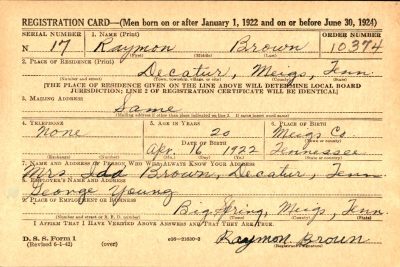 REGISTRATION CARD—(Men born on or after January 1, 1922 and on or before June 30, 1924)
SERIAL NUMBER 1. NAME (Print) ORDER NUMBER
N 17 Raymon Brown 10374
(First) (Middle) (Last)
2. PLACE OF RESIDENCE (Print)
Decatur, Meigs, Tenn.
(Number and street) (Town, township, village, or city) (County) (State)
[THE PLACE OF RESIDENCE GIVEN ON THE LINE ABOVE WILL DETERMINE LOCAL BOARD
JURISDICTION; LINE 2 OF REGISTRATION CERTIFICATE WILL BE IDENTICAL]
3. MAILING ADDRESS
Same
(Mailing address if other than place indicated on line 2. If same insert word same)
4. TELEPHONE 5. AGE IN YEARS 6. PLACE OF BIRTH
None 20 Meigs Co.
DATE OF BIRTH (Town or county)
Apr. 16 1922 Tennessee
(Exchange) (Number) (Mo.) (Day) (Yr.) (State or country)
7. NAME AND ADDRESS OF PERSON WHO WILL ALWAYS KNOW YOUR ADDRESS
Mrs. Ida Brown, Decatur, Tenn
8. EMPLOYER'S NAME AND ADDRESS
George Young
9. PLACE OF EMPLOYMENT OR BUSINESS
Big Spring, Meigs, Tenn.
(Number and street or R. F. D. number) (Town) (County) (State)
I AFFIRM THAT I HAVE VERIFIED ABOVE ANSWERS AND THAT THEY ARE TRUE.
D. S. S. Form 1
(Revised 6-1-42) (over) Raymon Brown
(Registrant's signature)